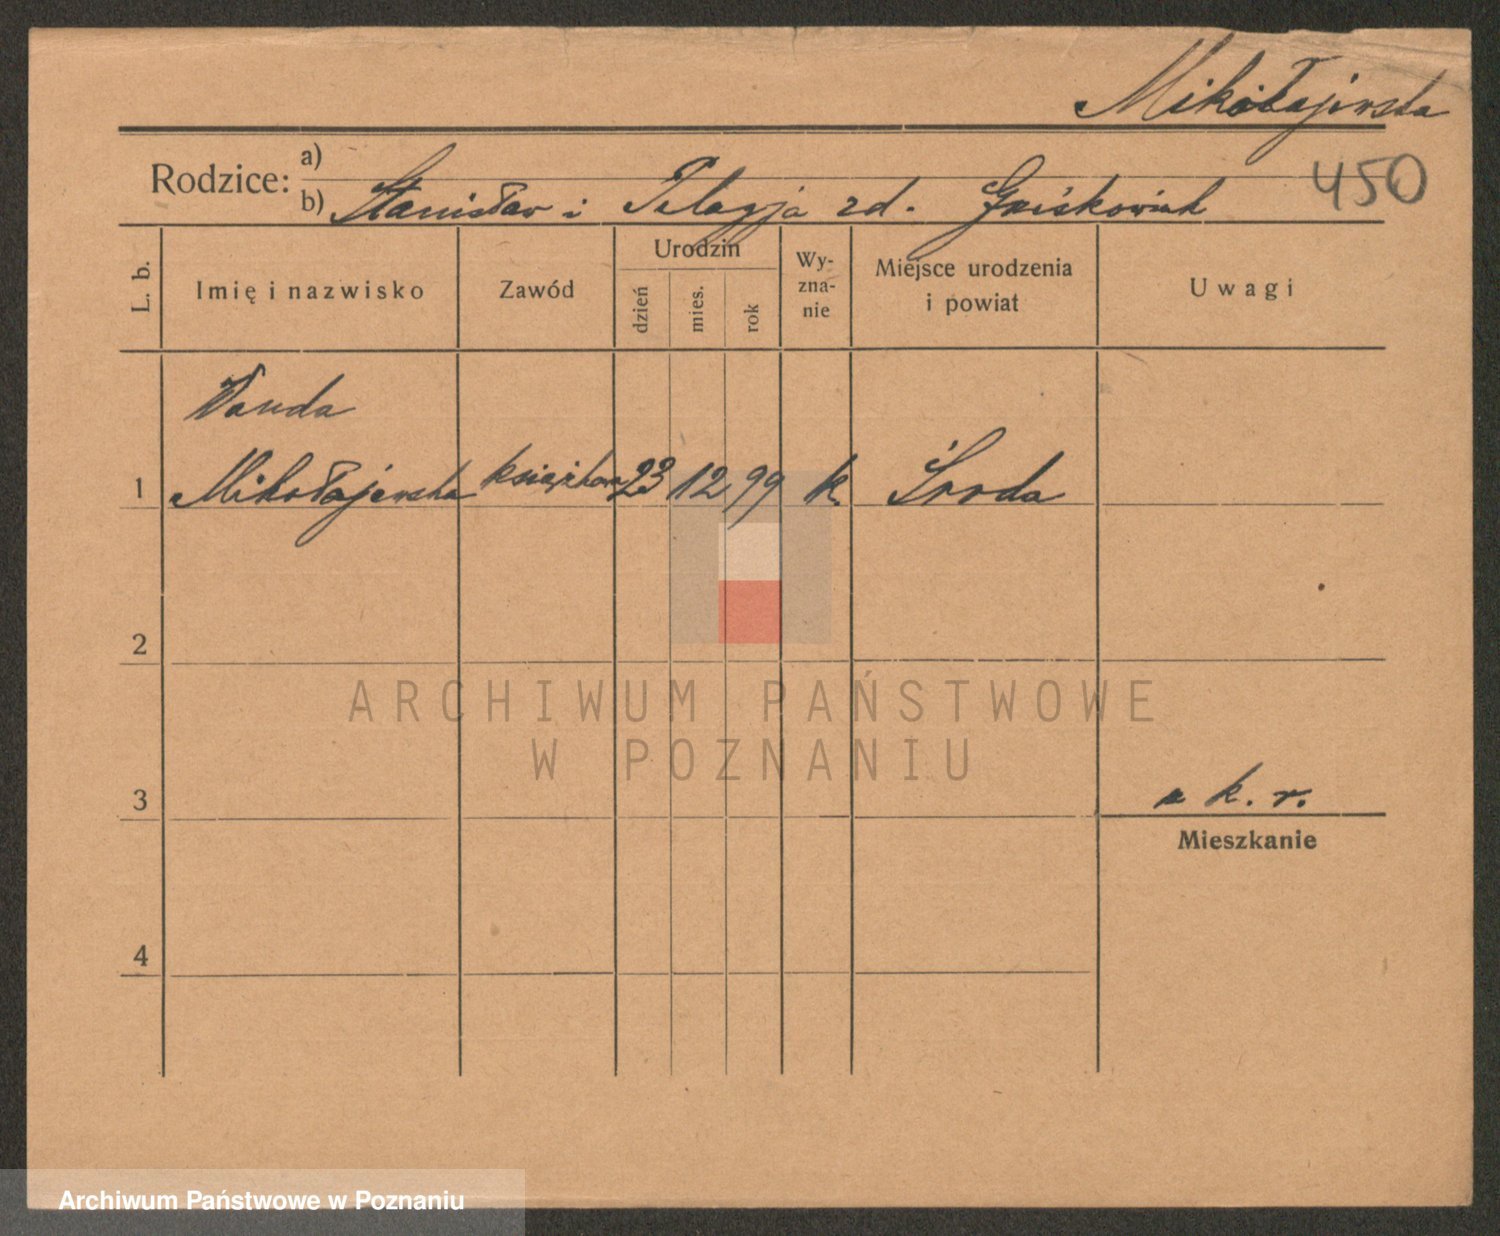 Mikołajewska
450
Rodzice: a)
b) Stanisław i Pelagja zd.
L. b.
Imię i nazwisko
Zawód
Urodzin
dzień
mies.
rok
Wy-
zna-
nie
Miejsce urodzenia
i powiat
Uwagi
Wanda
1 Mikołajewska 23 12 99 k. Środa
2
ARCHIWUM PAŃSTWOWE
W POZNANIU
3
k. r.
Mieszkanie
4
Archiwum Państwowe w Poznaniu